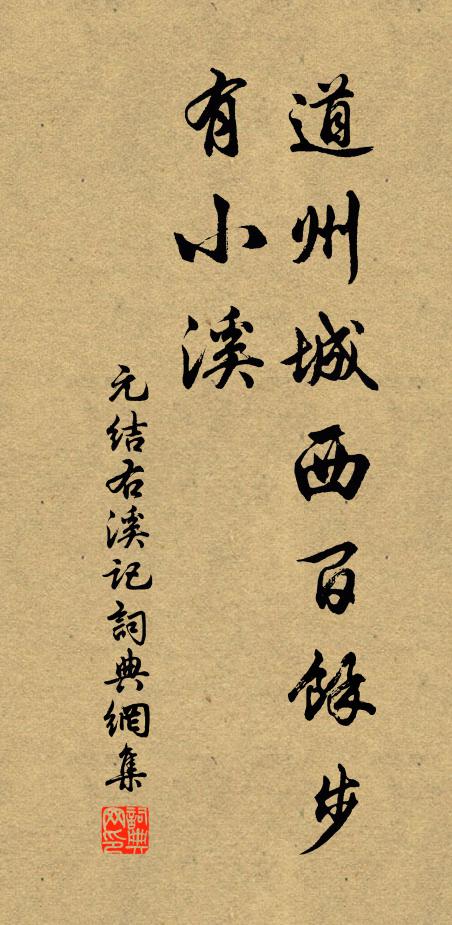 道州城西百餘步
有小溪
元结右溪记詞典網集
詞典网印